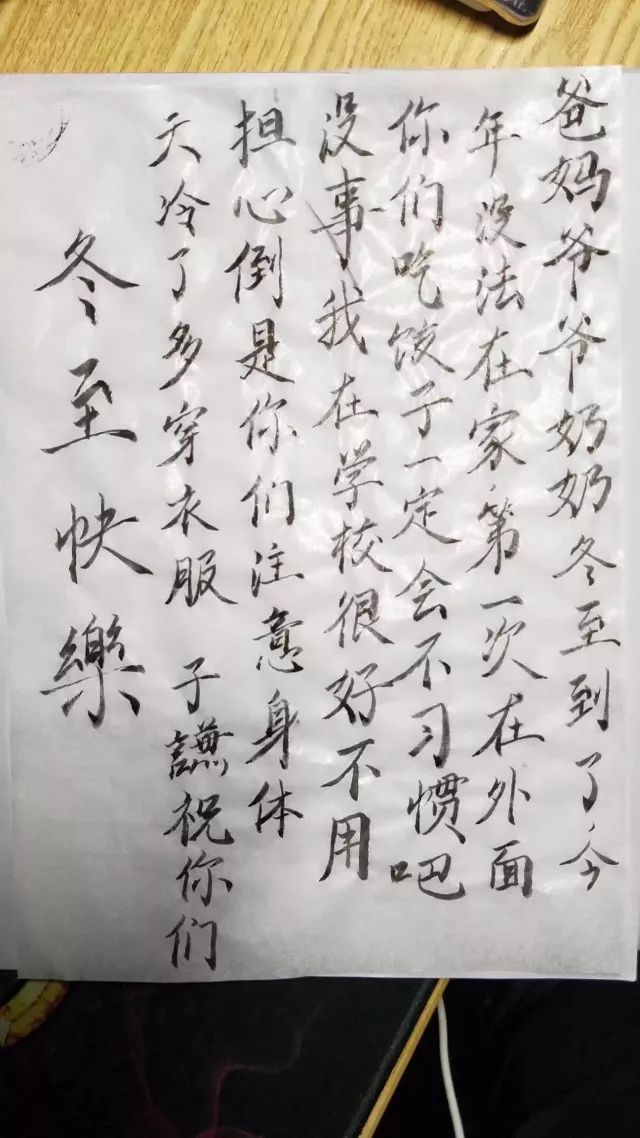 爸妈爷爷奶奶冬至到了今
年没法在家第一次在外面
你们吃饺子一定会不习惯吧
没事我在学校很好不用
担心倒是你们注意身体
天冷了多穿衣服 子讌祝你们
冬至快樂